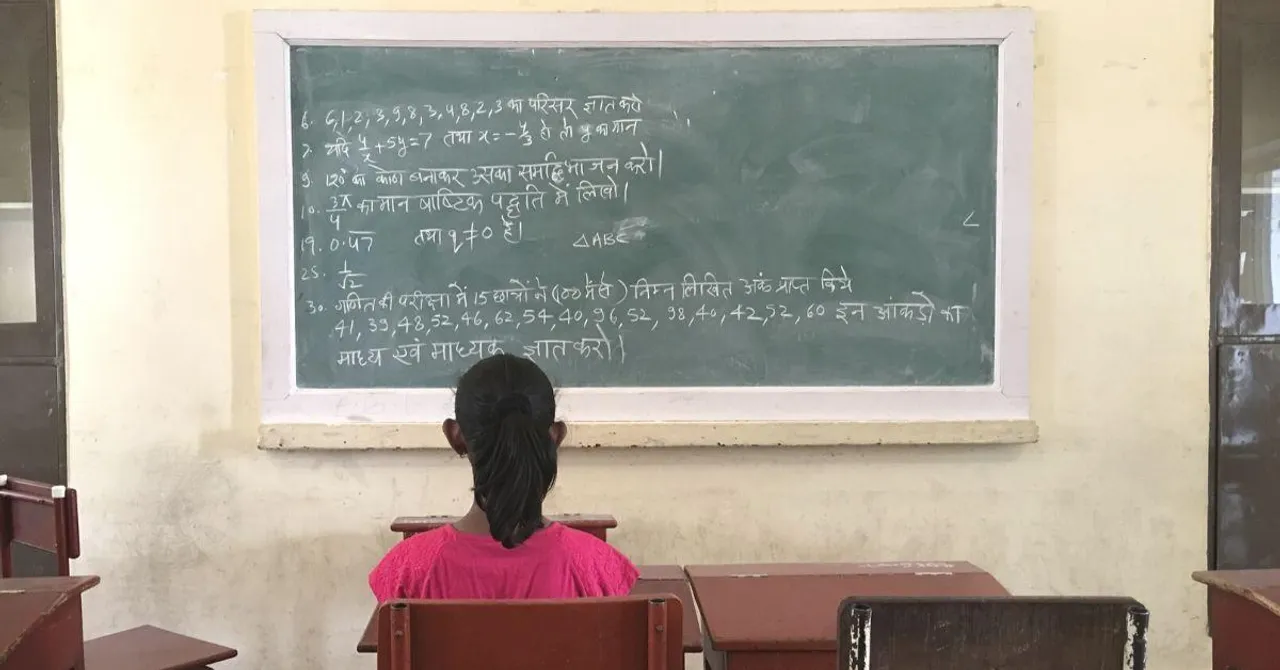 6. 6,1,2,3,9,8,3,4,8,2,3 का परिसर ज्ञात करो
7. यदि y/x + 5y = 7 तथा x = -4/3 हो तो y का मान
9. 120° का कोण बनाकर उसका समद्विभाजन करो।
10. 3π/4 का मान षाष्टिक पद्धति में लिखो।
19. 0.47 तथा q ≠ 0 है। △ABC
∠
25. 1/√2
30. गणित की परीक्षा में 15 छात्रों ने (100 में से) निम्न लिखित अंक प्राप्त किये
41, 39, 48, 52, 46, 62, 54, 40, 96, 52, 98, 40, 42, 52, 60 इन आंकड़ो का
माध्य एवं माध्यक ज्ञात करो।